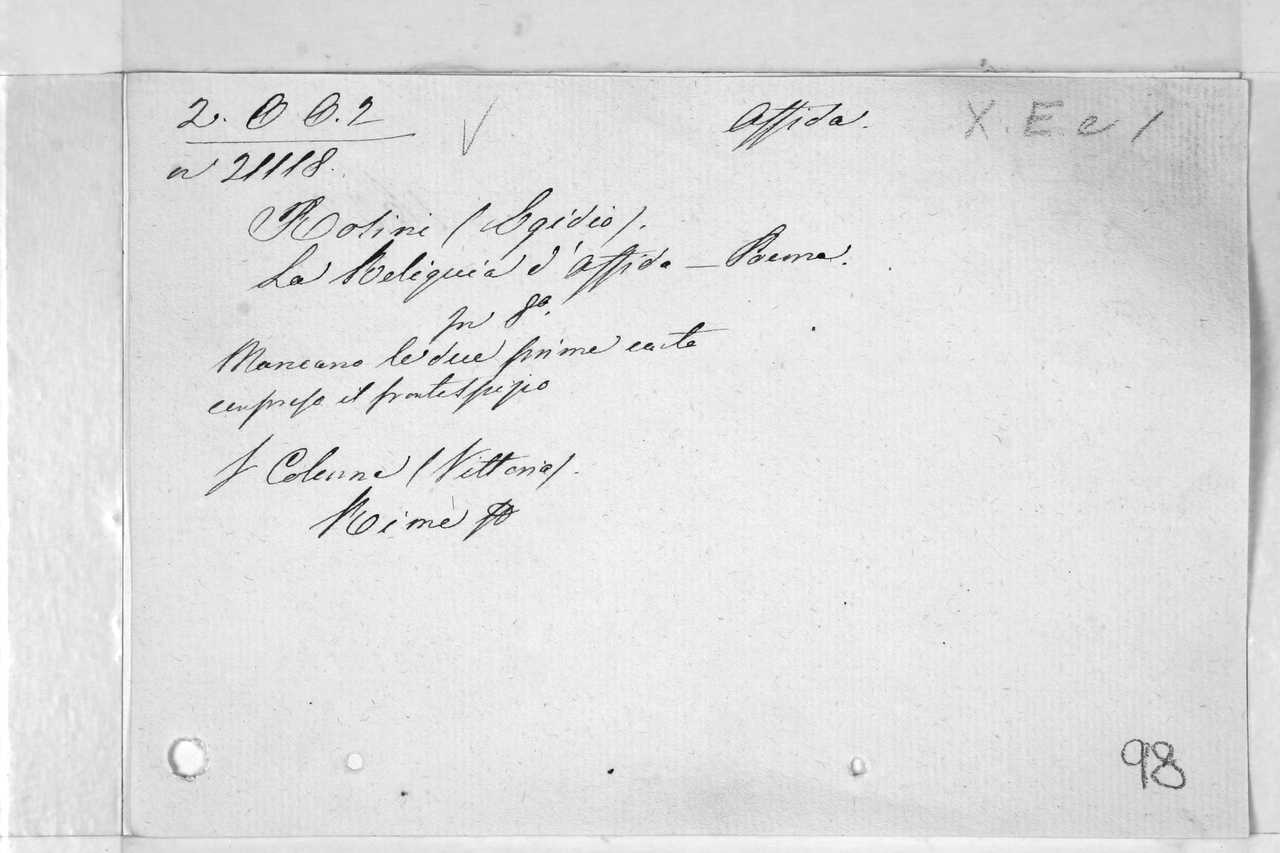 2. O O. 2
Offida.
X. E e 1
n 21118.
Rosini (Egidio).
La Reliquia d'Offida — Poema.
in 8º.
Mancano le due prime carte
compreso il frontespizio
Colonna (Vittoria).
Rime
98